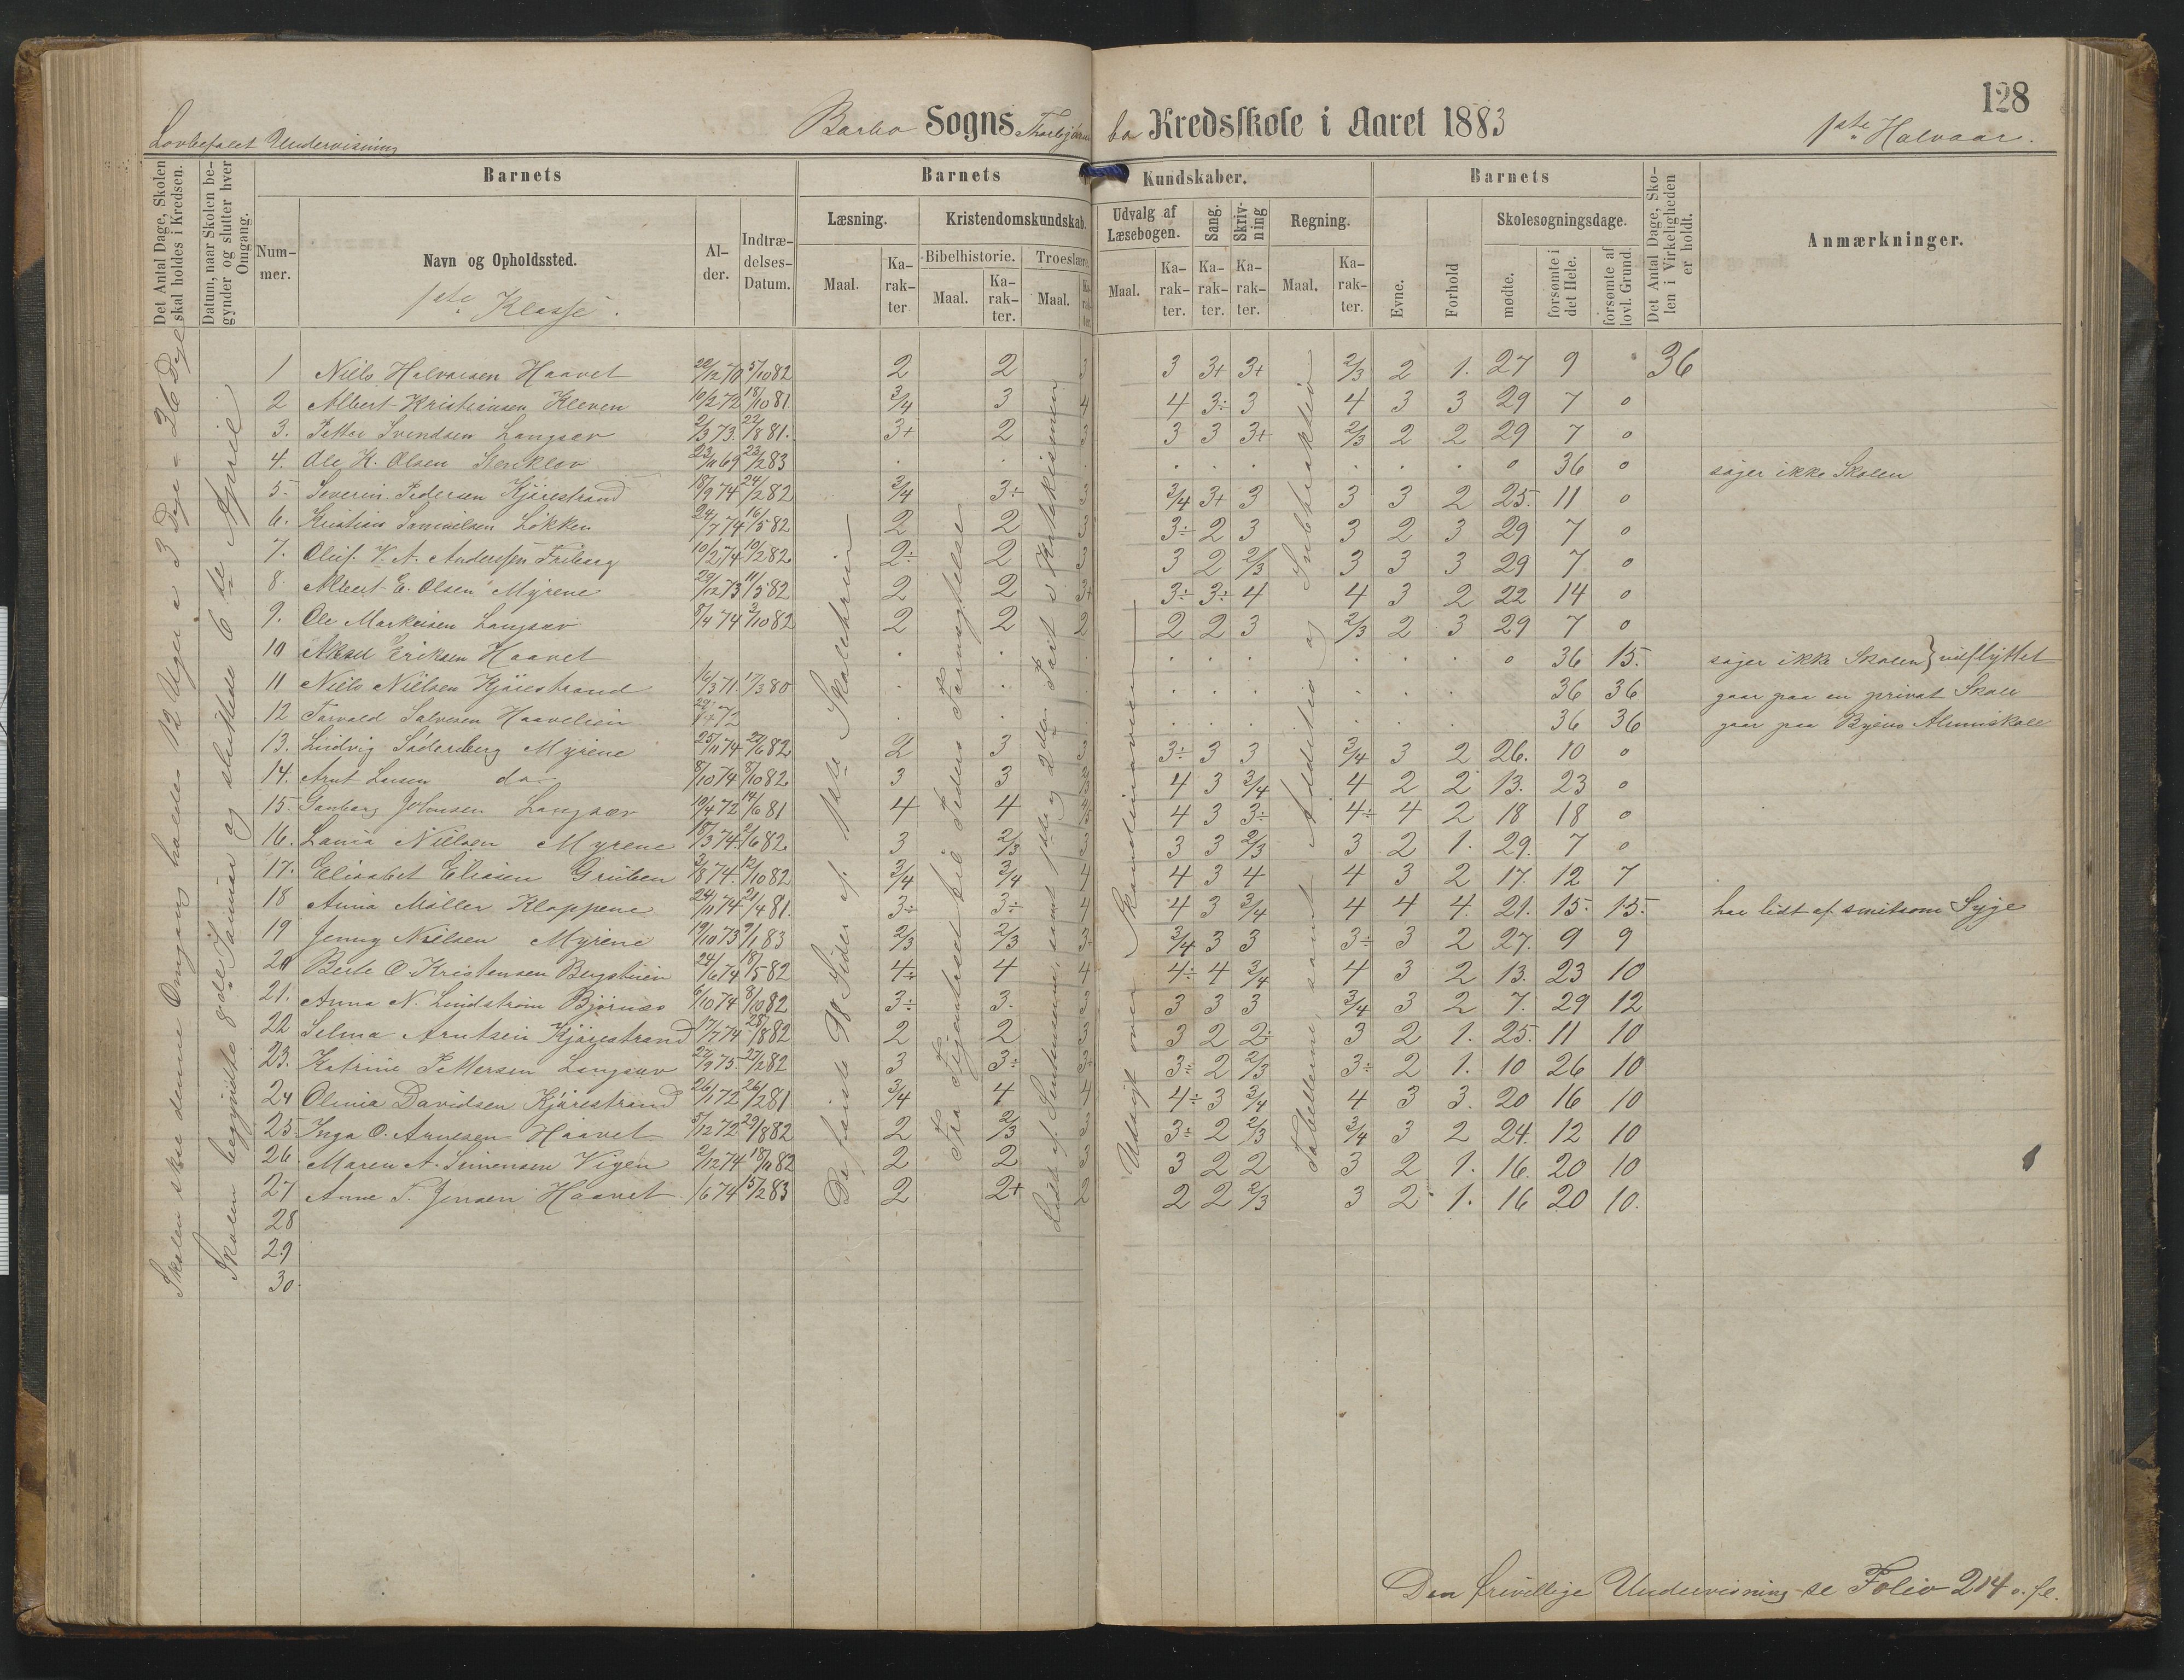 128
Barbo Sogns Thorbjørns bo Kredsskole i Aaret 1883
Lovbefalet Undervisning
1ste Halvaar.
Det Antal Dage, Skolen skal holdes i Kredsen.
Datum, naar Skolen begynder og slutter hver Omgang.
Barnets
Nummer.
Navn og Opholdssted.
1ste Klasse.
Alder.
Indtrædelses-Datum.
Barnets Kundskaber.
Læsning.
Maal.
Karakter.
Kristendomskundskab.
Bibelhistorie.
Maal.
Karakter.
Troeslære.
Maal.
Karakter.
Udvalg af Læsebogen.
Maal.
Karakter.
Sang.
Karakter.
Skrivning
Karakter.
Regning.
Maal.
Karakter.
Barnets
Evne.
Forhold
Skolesøgningsdage.
mødte.
forsømte i det Hele.
forsømte af lovl. Grund.
Det Antal Dage, Skolen i Virkeligheden er holdt.
Anmærkninger.
Skolen skal denne Omgang holdes 12 Uger a 3 Dage = 36 Dage
Skolen begyndte 8de Januar og sluttede 6te April
De første 98 Sider af 1ste Skoletrin
Fra Syndefaldet til Peders Fornegtelse
Lidt af Sentensene, samt 1ste og 2den Part i Katekismen
Udsigt over Skandinavien
Tabellerne, samt Addition og Subtraktion
1 Niels Halvorsen Haavet 22/12 70 5/10 82 2 2 3 3 3+ 3+ 2/3 2 1. 27 9 36
2 Albert Kristiansen Kleven 10/2 72 18/10 81. 3/4 3 4 4 3÷ 3 4 3 3 29 7 0
3. Petter Svendsen Langsæv 2/3 73. 22/8 81. 3+ 2 3 3 3 3+ 2/3 2 2 29 7 0
4. Ole K. Olsen Stenkløv 23/11 69 23/2 83 . . . . . . . . . 0 36 0 søger ikke Skolen
5. Severin Pedersen Kjörestrand 18/9 74 24/2 82 3/4 3÷ 3 3/4 3+ 3 3 3 2 25. 11 0
6. Kristian Samuelsen Løkken 24/7 74 16/5 82 2 2 3 3÷ 2 3 3 2 3 29 7 0
7. Oluf V. A. Anderssen Friberg 10/2 74. 10/2 82 2÷ 2 3 3 2 2/3 3 3 3 29 7 0
8. Albert E. Olsen Myrene 29/12 73 11/5 82 2 2 3+ 3÷ 3÷ 4 4 3 2 22 14 0
9. Ole Markusen Langsæv 8/4 74 3/10 82 2 2 2 2 2 3 2/3 2 3 29 7 0
10 Aksel Eriksen Haavet . . . . . . . . . 0 36 15. søger ikke Skolen } udflyttet
11 Niels Nielsen Kjörestrand 16/3 71. 17/3 80 . . . . . . . . . 36 36 gaar paa en privat Skole
12 Torvald Salvesen Haavelien . . . . . . . . . 36 36 gaar paa Byens Almuskole
13. Ludvig Söderberg Myrene 25/11 74 22/6 82 2 3 3 3÷ 3 3 3/4 3 2 26. 10 0
14. Arnt Larsen do. 8/10 74 8/10 82 3 3 2/3 4 3 3/4 4 2 2 13. 23 0
15. Gunborg Johnsen Langsæv 10/4 72 14/6 81 4 4 4 4 3 3÷ 4÷ 4 2 18 18 0
16. Laura Nielsen Myrene 18/3 74. 2/6 82 3 2/3 3 3 3 2/3 3 2 1. 29. 7 0
17. Elisabet Eliasen Gruben 3/8 74. 12/10 82 3/4 3/4 4 4 3 4 4 3 2 17. 12 7
18 Anna Möller Kloppene 24/11 74 21/4 81. 3÷ 3÷ 4 4 3 3/4 4 4 4. 21. 15. 15. har lidt af smitsom Syge
19 Jenny Nielsen Myrene 19/10 73 9/1 83 2/3 2/3 3+ 3/4 3 3 3÷ 3 2 27. 9 9
20 Berte O. Kristensen Bergstuen 24/6 74 18/5 82 4÷ 4 4 4÷ 4 3/4 4 3 2 13. 23 10
21. Anna N. Lindström Björnæs 6/10 74 8/10 82 3÷ 3. 3 3 3 3 3/4 3 2 7. 29 12
22 Selma Arntsen Kjörestrand 17/7 74. 28/8 82 2 2 3 3 2 2÷ 3 2 1. 25. 11 10
23. Katrine Pettersen Langsæv 22/9 73. 27/2 82 3 3÷ 3+ 3÷ 2 2/3 3÷ 2 1. 10 26 10
24 Olinia Davidsen Kjörestrand 26/1 72 26/2 81 3/4 4 4 4÷ 3 3/4 4 3 3. 20 16 10
25. Inga O. Arnesen Haavet 5/12 72 29/8 82 2 2/3 3 3÷ 2 2/3 3/4 3 2 24. 12 10
26. Maren A. Simensen Vigen 2/12 74 18/11 82 2 2 3 3 2 2 3 2 1. 16. 20 10
27 Anne T. Jensen Haavet /6 74 15/2 83 2 2+ 2 2 2 2/3 3 2 1. 16 20 10.
28
29
30.
Den frivillige Undervisning se Folio 214 o. fl.